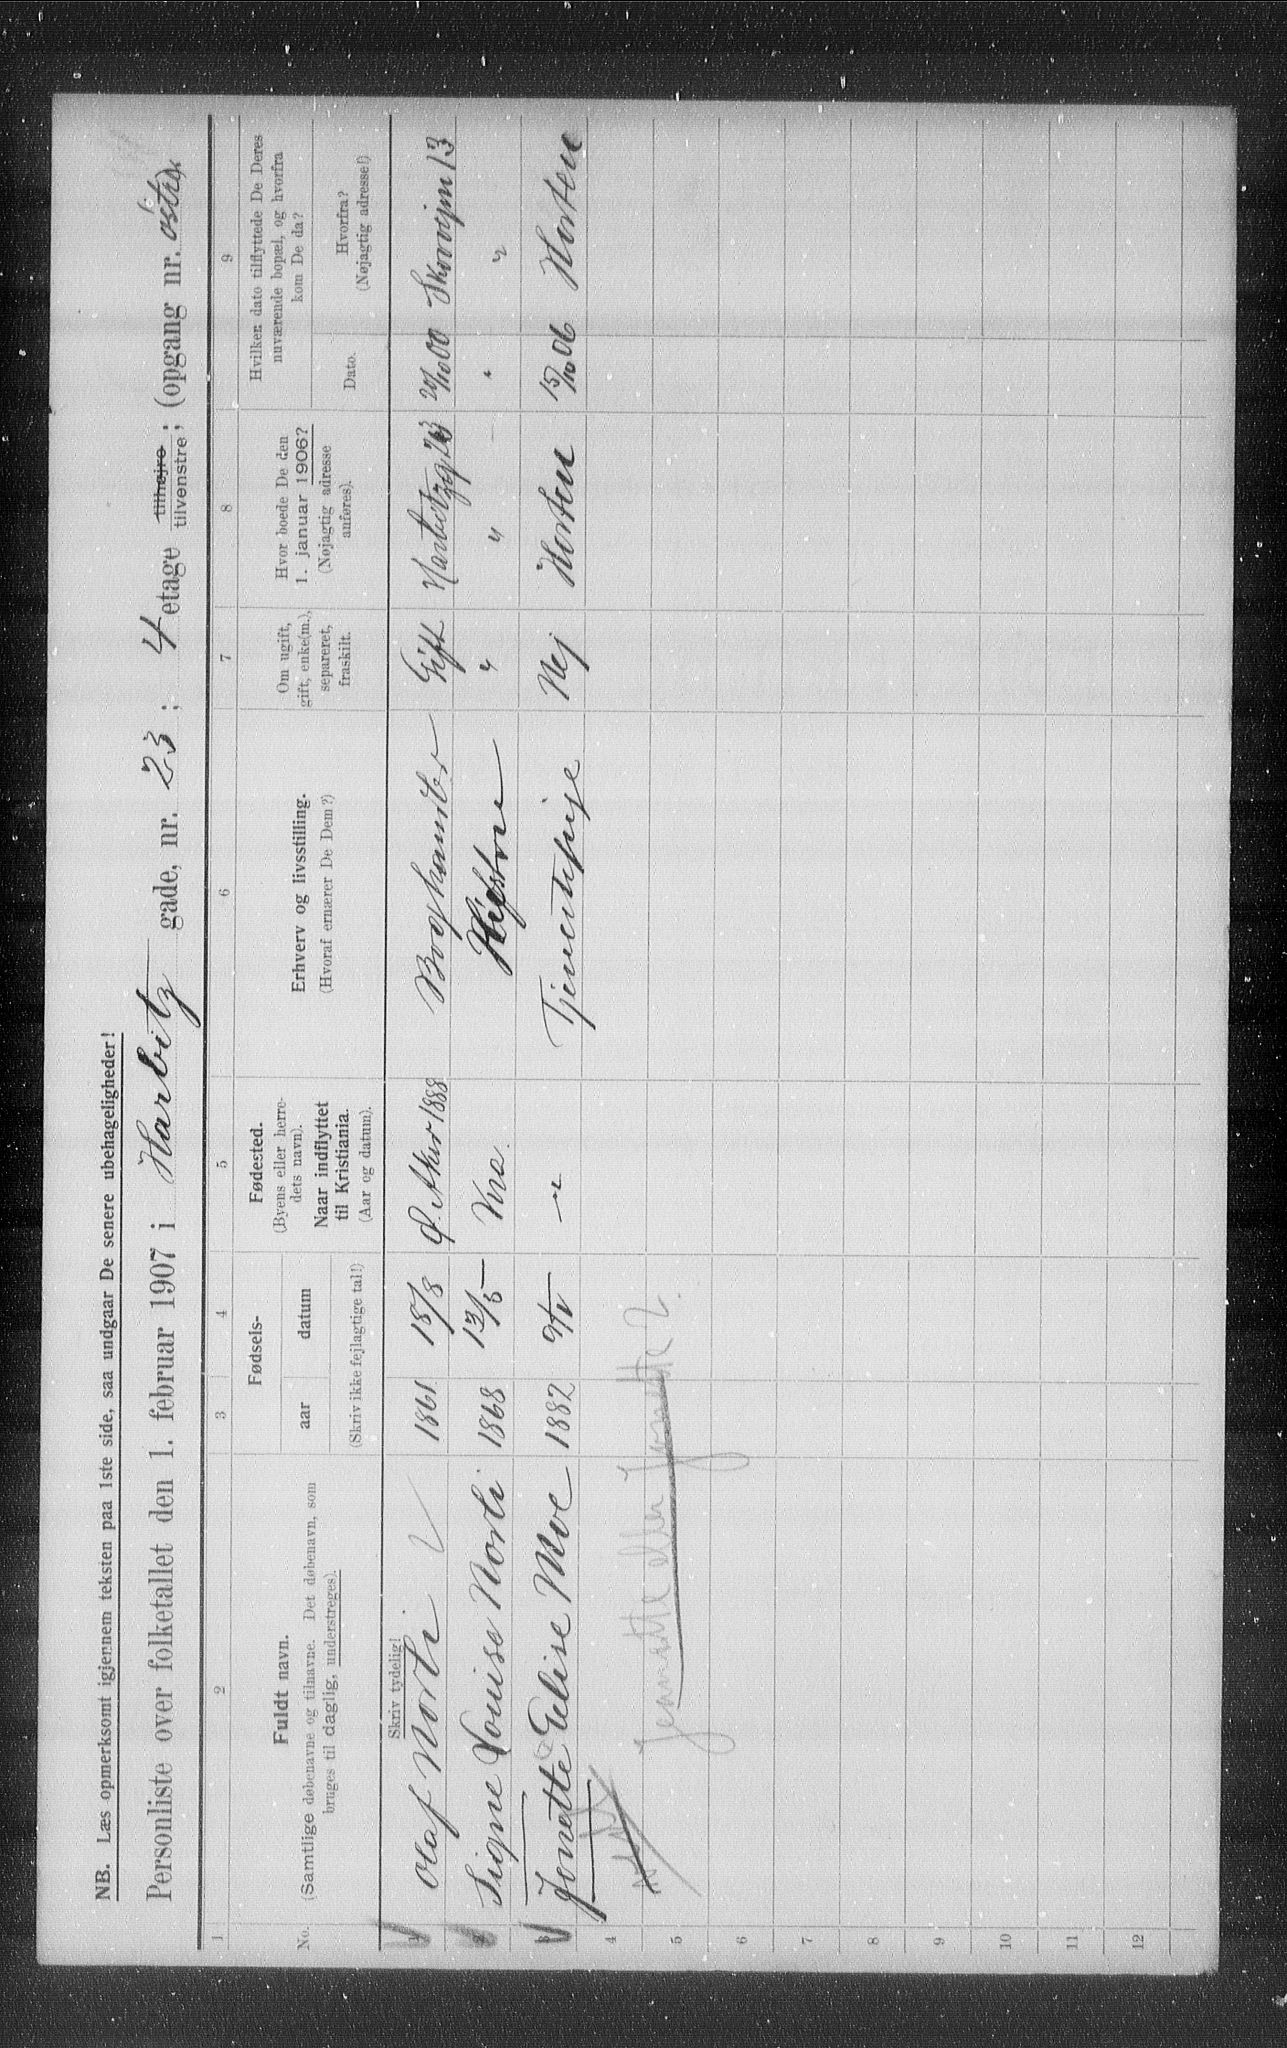 NB. Læs opmerksomt igjennem teksten paa 1ste side, saa undgaar De senere ubehageligheder!
Personliste over folketallet den 1. februar 1907 i Harbitz gade, nr. 23; 4 etage tilhøjre tilvenstre; (opgang nr.
1 2 3 4 5 6 7 8 9
No.
Fuldt navn.
(Samtlige døbenavne og tilnavne. Det døbenavn, som
bruges til daglig, understreges).
Fødsels-
aar datum
(Skriv ikke fejlagtige tal!)
Fødested.
(Byens eller herre-
dets navn).
Naar indflyttet
til Kristiania.
(Aar og datum).
Erhverv og livsstilling.
(Hvoraf ernærer De Dem?)
Om ugift,
gift, enke(m.),
separeret,
fraskilt.
Hvor boede De den
1. januar 1906?
(Nøjagtig adresse
anføres).
Hvilken dato tilflyttede De Deres
nuværende bopæl, og hvorfra
kom De da?
Dato.
Hvorfra?
(Nøjagtig adresse!)
Skriv tydelig!
1 Olaf Norli 1861 18/8 Ø. Aker 1888 Boghandler Gift Harbitzg 23 20/10 00 Skovvejen 13
2 Signe Louise Norli 1868 12/5 Kra. Hustru " " " "
3 Jonette Elise Moe 1882 Tjenestepige Nej Horten 15/10 06 Horten
4
5 Jeanette eller Jonette?
6
7
8
9
10
11
12